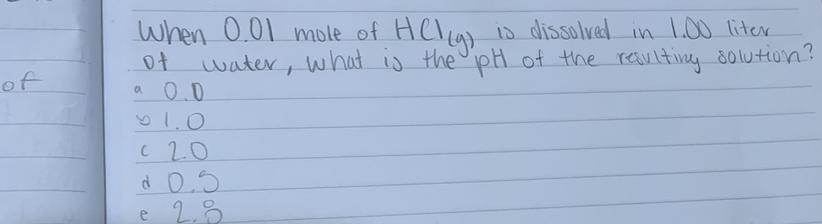 of
When 0.01 mole of HCl(g) is dissolved in 1.00 liter
of water, what is the pH of the resulting solution?
a 0.0
b 1.0
c 2.0
d 0.5
e 2.8